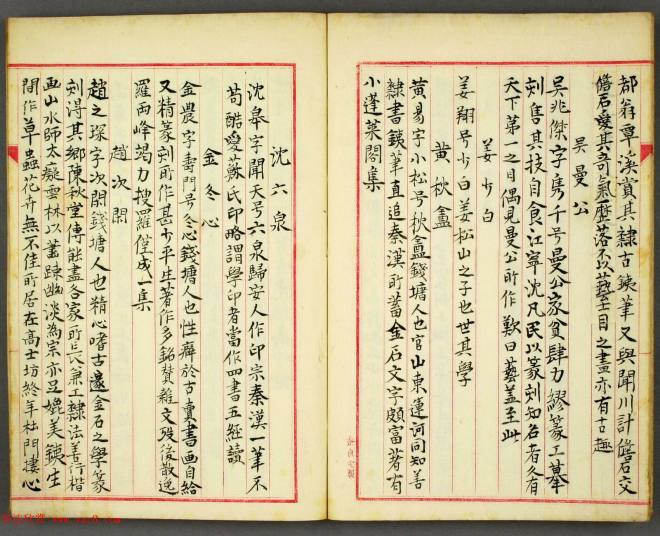 都翁覃溪賞其隸古鐵筆又與聞川計儋石交
儋石愛其奇氣歷落不以藝士目之畫亦有古趣
吳曼公
吳兆傑字雋千号曼公家貧肆力繆篆工摹
刻售其技自食江寧沈凡民以篆刻知名者久有
天下第一之目偶見曼公所作歎曰藝蓋至此
姜少白
姜翔号少白姜松山之子也世其學
黄秋盦
黄易字小松号秋盦錢塘人也官山東運河同知善
隸書鐵筆直追秦漢所蓄金石文字頗富著有
小蓬萊閣集
沈六泉
沈皋字聞天号六泉歸安人作印宗秦漢一筆不
苟酷愛蘇氏印略謂學印者當作四書五經讀
金冬心
金農字壽門号冬心錢塘人也性癖於古賣書画自給
又精篆刻所作甚少平生著作多銘贊雜文歿後散逸
羅兩峰竭力搜羅僅成一集
趙次閑
趙之琛字次閑錢塘人也精心嗜古邃金石之學篆
刻得其鄉陳秋堂傳能盡各家所長兼工隸法善行楷
画山水師太癡雲林以蕭疎幽淡為宗亦足媲美鐵生
間作草蟲花卉無不佳所居在高士坊終年杜門摟心